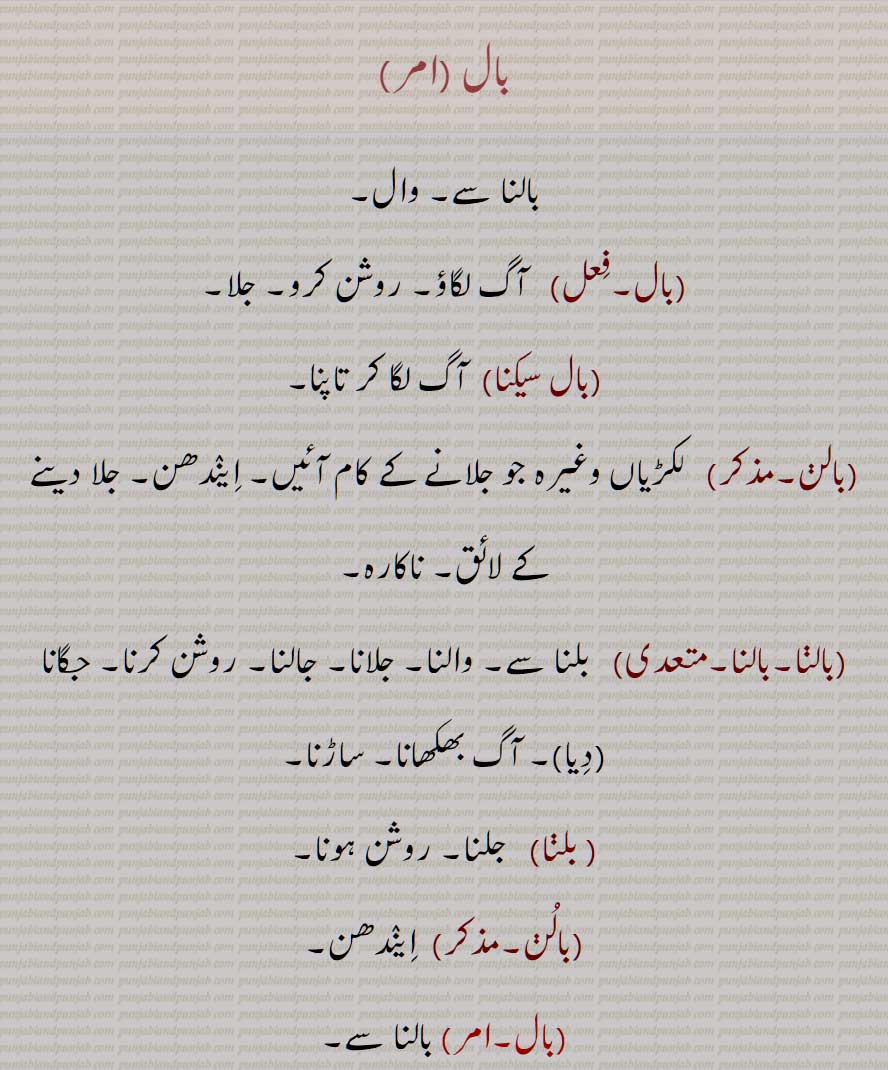 بال (امر)
بالنا سے۔ وال۔
(بال۔فِعل) آگ لگاؤ۔ روشن کرو۔ جلا۔
(بال سیکنا) آگ لگا کر تاپنا۔
(بالݨ۔مذکر) لکڑیاں وغیرہ جو جلانے کے کام آئیں۔ اِین٘دھن۔ جلا دینے
کے لائق۔ ناکارہ۔
(بالݨا۔بالنا۔متعدی) بلنا سے۔ والنا۔ جلانا۔ جالنا۔ روشن کرنا۔ جگانا
(دِیا)۔ آگ بھکھانا۔ ساڑنا۔
( بلݨا) جلنا۔ روشن ہونا۔
(بالُݨ۔مذکر) اِین٘دھن۔
(بال۔امر) بالنا سے۔